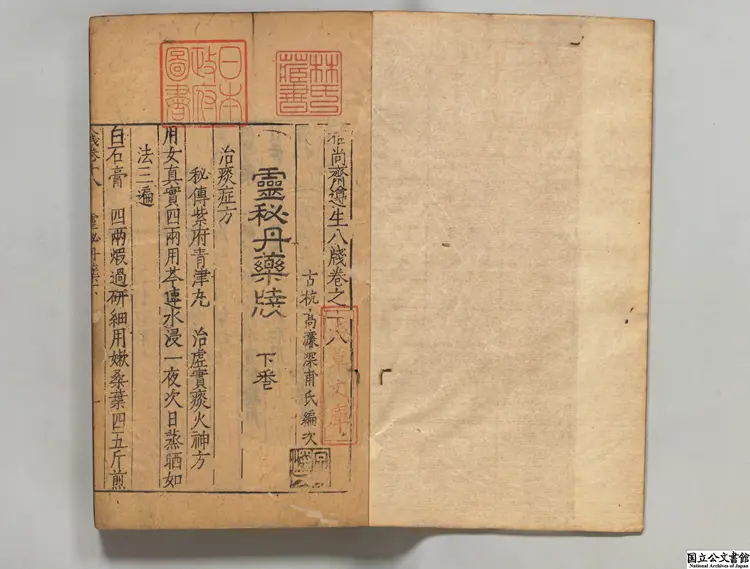 尚齋遵生八牋卷之十八
古杭高濂深甫氏編次
靈秘丹藥牋 下卷
治痰症方
秘傳紫府青津丸 治虛實痰火神方
用女真實四兩用芩連水浸一夜次日蒸晒如
法三遍
白石膏 四兩煅過研細用嫰桑葉四五斤煎
日本
政府
圖書
林氏
藏書
文庫
国立公文書館
National Archives of Japan